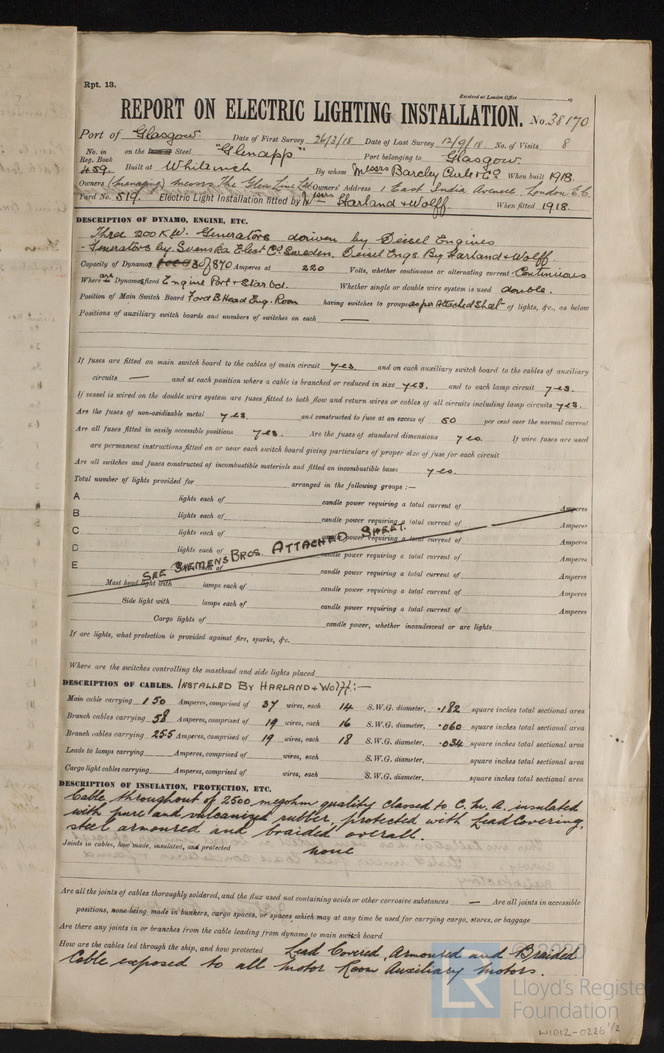 Rpt. 13.
Received at London Office
REPORT ON ELECTRIC LIGHTING INSTALLATION. No. 38170
Port of Glasgow Date of First Survey 26/3/18 Date of Last Survey 12/9/18 No. of Visits 8
No. in Reg. Book 459 on the Steel "Glenapp" Port belonging to Glasgow
Built at Whiteinch By whom Messrs Barclay Curle & Co When built 1918
Owners (Managing) Messrs The Glen Line Ltd Owners' Address 1 East India Avenue, London E.C.
Yard No. 519. Electric Light Installation fitted by Messrs Harland & Wolff When fitted 1918.
DESCRIPTION OF DYNAMO, ENGINE, ETC.
Three 200 K.W. Generators driven by Diesel Engines
Generators by Svenska Elect Co Sweden, Diesel Engs. By Harland & Wolff.
Capacity of Dynamos 3 of 870 Amperes at 220 Volts, whether continuous or alternating current Continuous
Where are Dynamos fixed Engine Port & Starbd. Whether single or double wire system is used double.
Position of Main Switch Board Ford B Head Eng. Room having switches to groups as per Attached Sheet of lights, &c., as below
Positions of auxiliary switch boards and numbers of switches on each —
If fuses are fitted on main switch board to the cables of main circuit yes. and on each auxiliary switch board to the cables of auxiliary
circuits — and at each position where a cable is branched or reduced in size yes. and to each lamp circuit yes.
If vessel is wired on the double wire system are fuses fitted to both flow and return wires or cables of all circuits including lamp circuits yes.
Are the fuses of non-oxidizable metal yes. and constructed to fuse at an excess of 50 per cent over the normal current
Are all fuses fitted in easily accessible positions yes. Are the fuses of standard dimensions yes If wire fuses are used
are permanent instructions fitted on or near each switch board giving particulars of proper size of fuse for each circuit
Are all switches and fuses constructed of incombustible materials and fitted on incombustible bases yes.
Total number of lights provided for arranged in the following groups :—
A lights each of candle power requiring a total current of Amperes
B lights each of candle power requiring a total current of Amperes
C lights each of candle power requiring a total current of Amperes
D lights each of candle power requiring a total current of Amperes
E lights each of candle power requiring a total current of Amperes
SEE SIEMENS BROS. ATTACHED SHEET.
Mast head light with lamps each of candle power requiring a total current of Amperes
Side light with lamps each of candle power requiring a total current of Amperes
Cargo lights of candle power, whether incandescent or arc lights
If arc lights, what protection is provided against fire, sparks, &c.
Where are the switches controlling the masthead and side lights placed
DESCRIPTION OF CABLES. INSTALLED BY HARLAND & Wolff:—
Main cable carrying 150 Amperes, comprised of 37 wires, each 14 S.W.G. diameter, .182 square inches total sectional area
Branch cables carrying 58 Amperes, comprised of 19 wires, each 16 S.W.G. diameter, .060 square inches total sectional area
Branch cables carrying 255 Amperes, comprised of 19 wires, each 18 S.W.G. diameter, .034 square inches total sectional area
Leads to lamps carrying Amperes, comprised of wires, each S.W.G. diameter, square inches total sectional area
Cargo light cables carrying Amperes, comprised of wires, each S.W.G. diameter, square inches total sectional area
DESCRIPTION OF INSULATION, PROTECTION, ETC.
Cable throughout of 2500 megohm quality classed to C. M. A. insulated
with pure and vulcanized rubber, protected with Lead Covering,
steel armoured and braided overall.
Joints in cables, how made, insulated, and protected none
Are all the joints of cables thoroughly soldered, and the flux used not containing acids or other corrosive substances — Are all joints in accessible
positions, none being made in bunkers, cargo spaces, or spaces which may at any time be used for carrying cargo, stores, or baggage
Are there any joints in or branches from the cable leading from dynamo to main switch board
How are the cables led through the ship, and how protected Lead Covered, Armoured and Braided
Cable exposed to all Motor Room Auxiliary Motors.
LR
Lloyd's Register
Foundation
W1012-0226 1/2